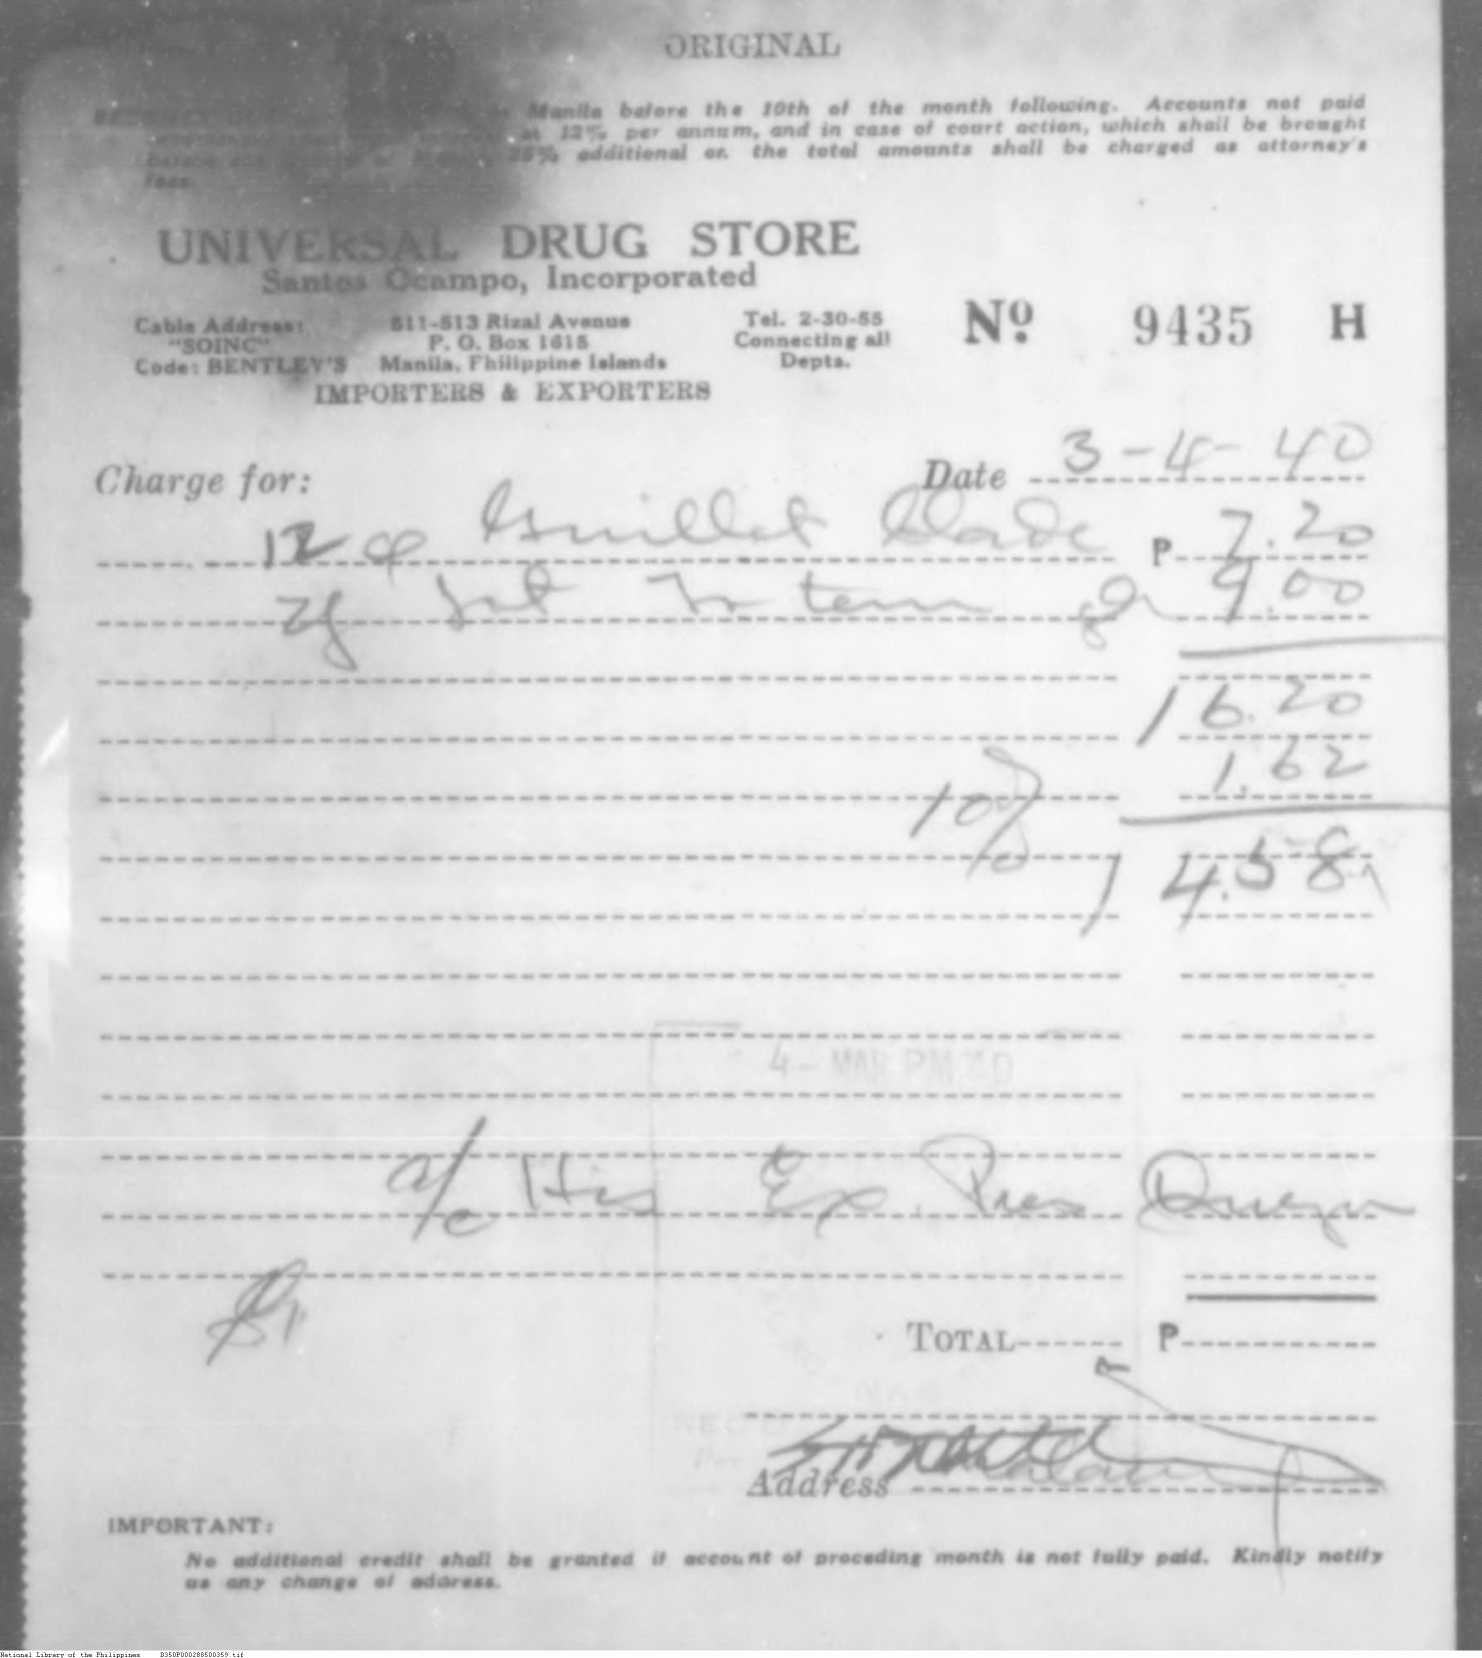 ORIGINAL
Manila before the 10th of the month following. Accounts not paid
at 12% per annum, and in case of court action, which shall be brought
25% additional on the total amounts shall be charged as attorney's
fees
UNIVERSAL DRUG STORE
Santos Ocampo, Incorporated
Cable Address: 511-513 Rizal Avenue Tel. 2-30-55 Nº 9435 H
"SOINC" P. O. Box 1615 Connecting all
Code: BENTLEY'S Manila, Philippine Islands Depts.
IMPORTERS & EXPORTERS
Charge for: Date 3-4-40
12 Guillet blade P 7.20
9.00
16.20
10% 1.62
14.58
4- MAR PM 40
a/c His Ex. Pres Quezon
TOTAL P
Address
IMPORTANT:
No additional credit shall be granted if account of proceding month is not fully paid. Kindly notify
us any change of address.
National Library of the Philippines D350P000288500359.tif